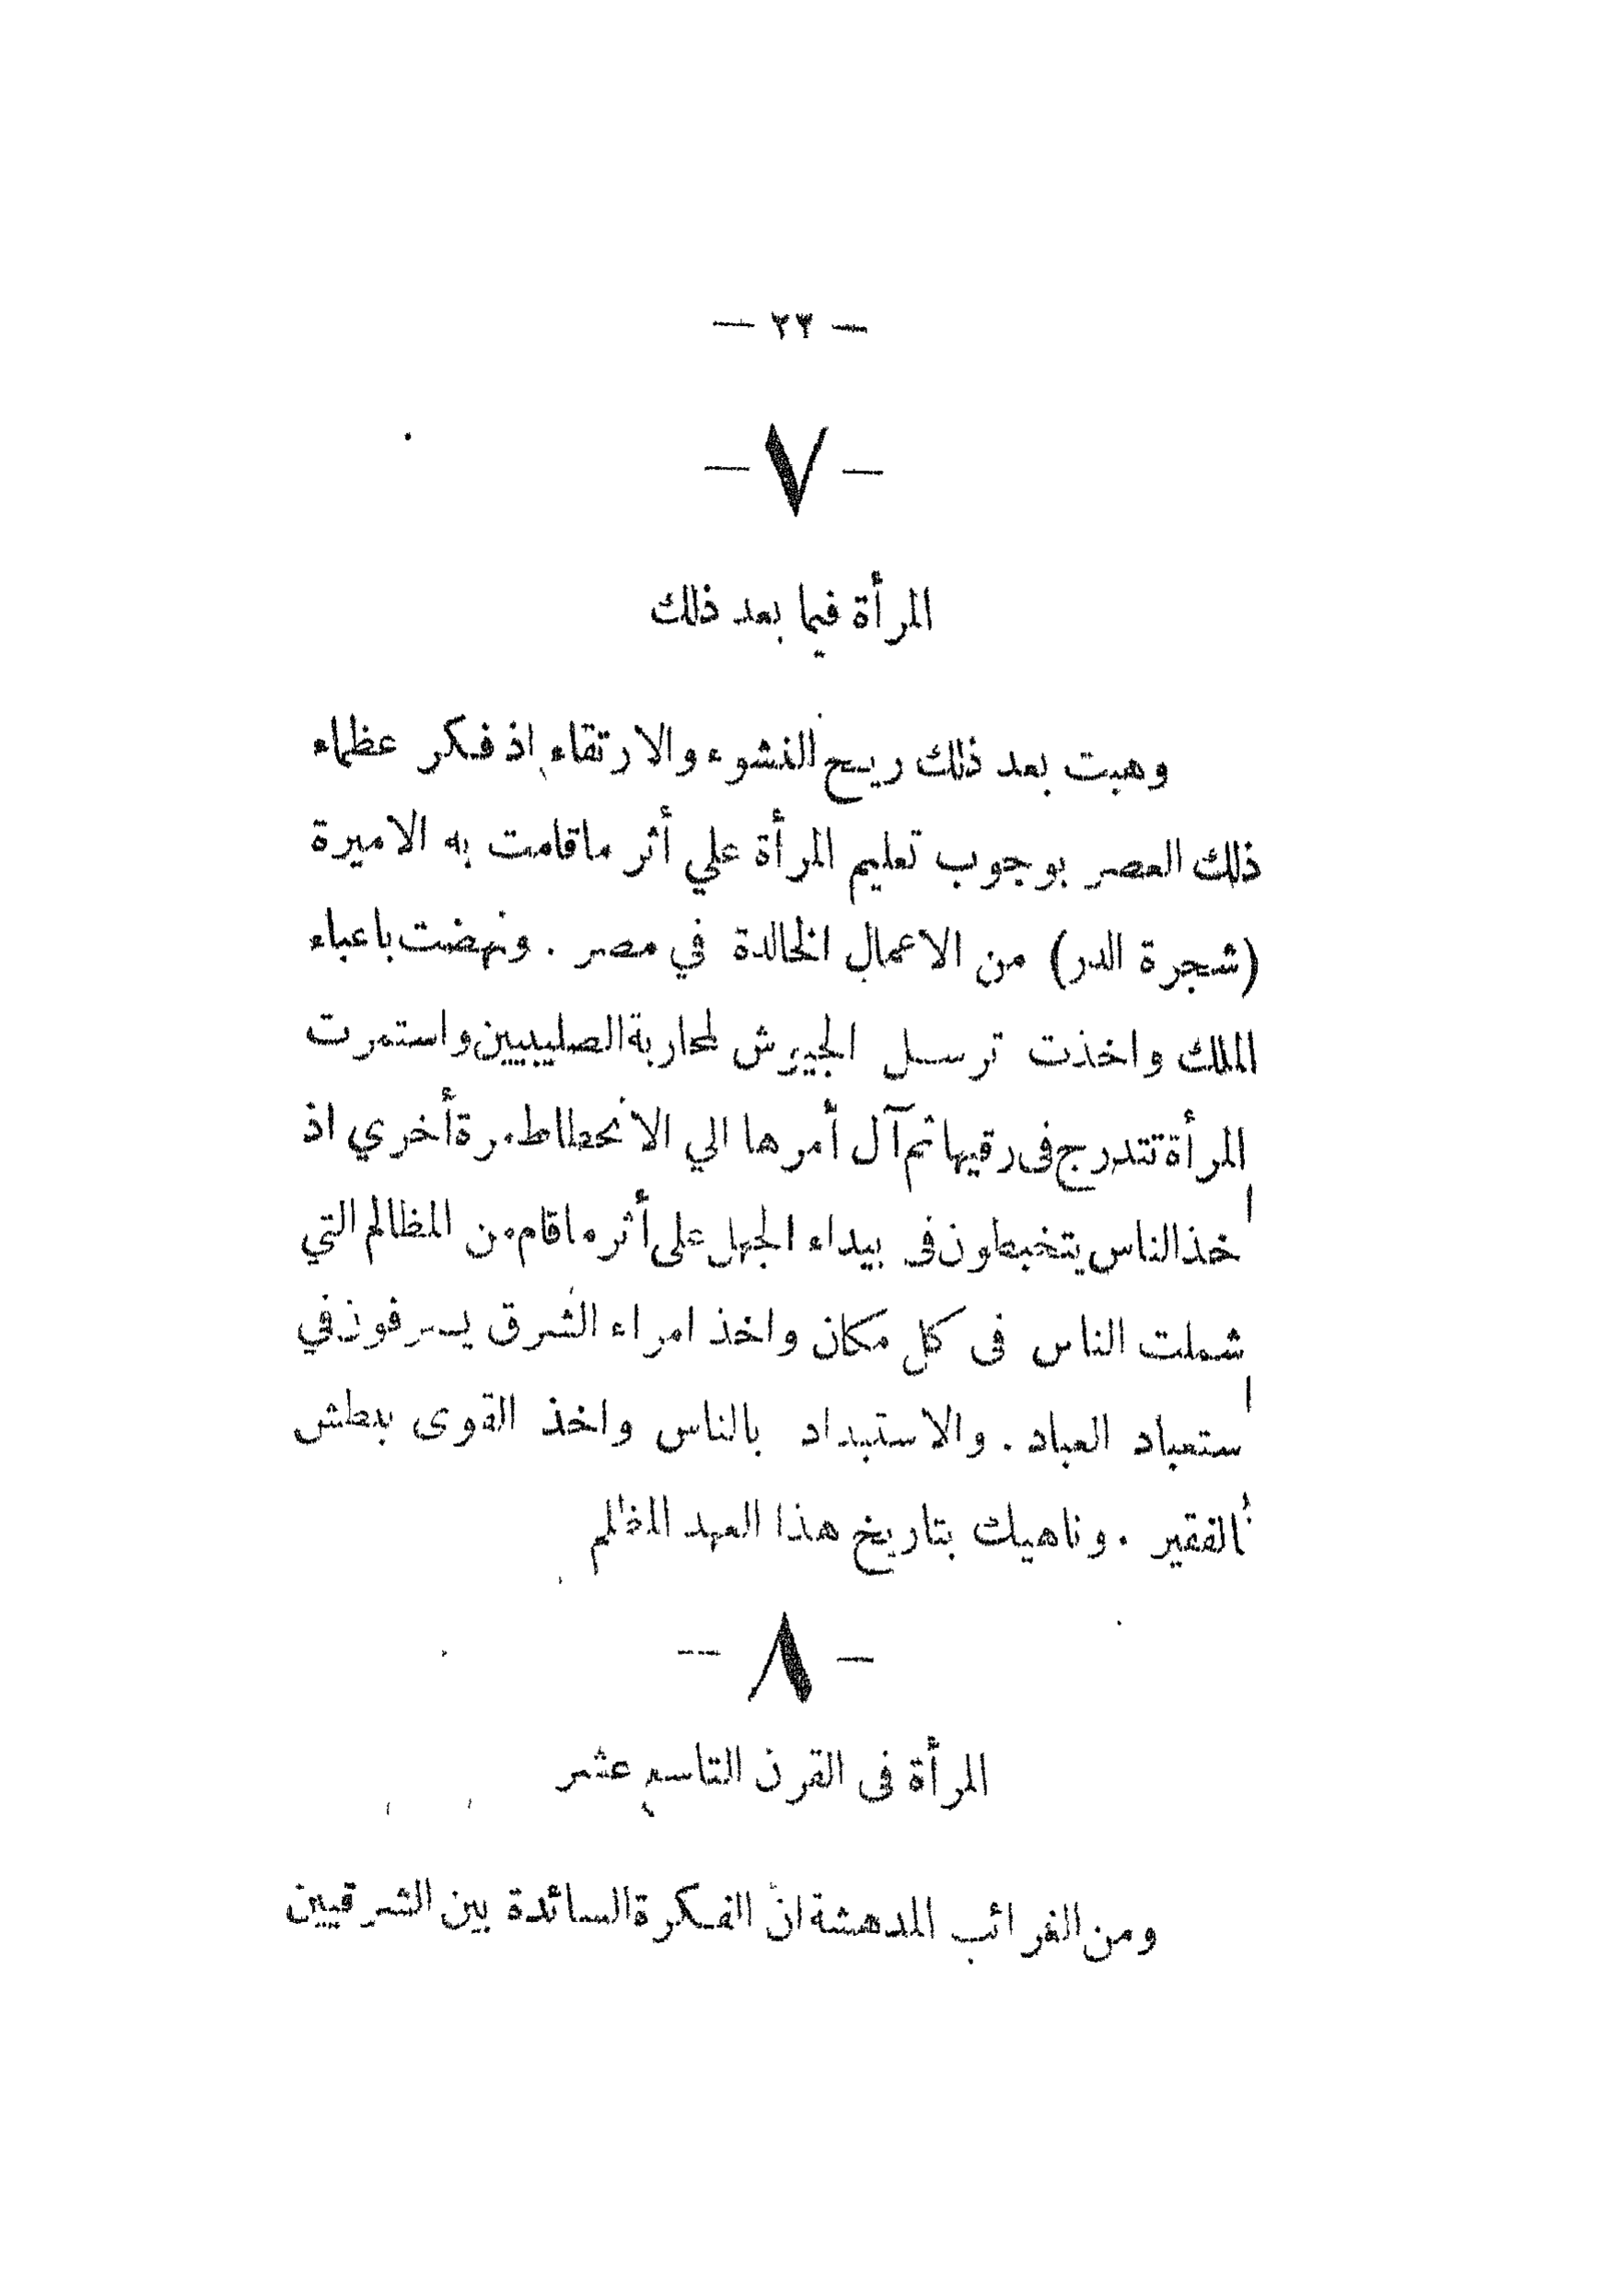 — ٢٣ —
— ٧ —
المرأة فيما بعد ذلك
وهبت بعد ذلك ريح النشوء والارتقاء اذ فكر عظماء
ذلك العصر بوجوب تعليم المرأة علي أثر ماقامت به الاميرة
(شجرة الدر) من الاعمال الخالدة في مصر . ونهضت باعباء
الملك واخذت ترسل الجيوش لمحاربة الصليبيين واستمرت
المرأة تتدرج فى رقيها ثم آل أمرها الي الانحطاط مرة أخري اذ
اخذ الناس يتخبطون فى بيداء الجهل على أثر ماقام من المظالم التي
شملت الناس فى كل مكان واخذ امراء الشرق يسرفون في
استعباد العباد . والاستبداد بالناس واخذ القوى يبطش
بالفقير . وناهيك بتاريخ هذا العهد المظلم
— ٨ —
المرأة فى القرن التاسع عشر
ومن الغرائب المدهشة انّ الفكرة السائدة بين الشرقيين